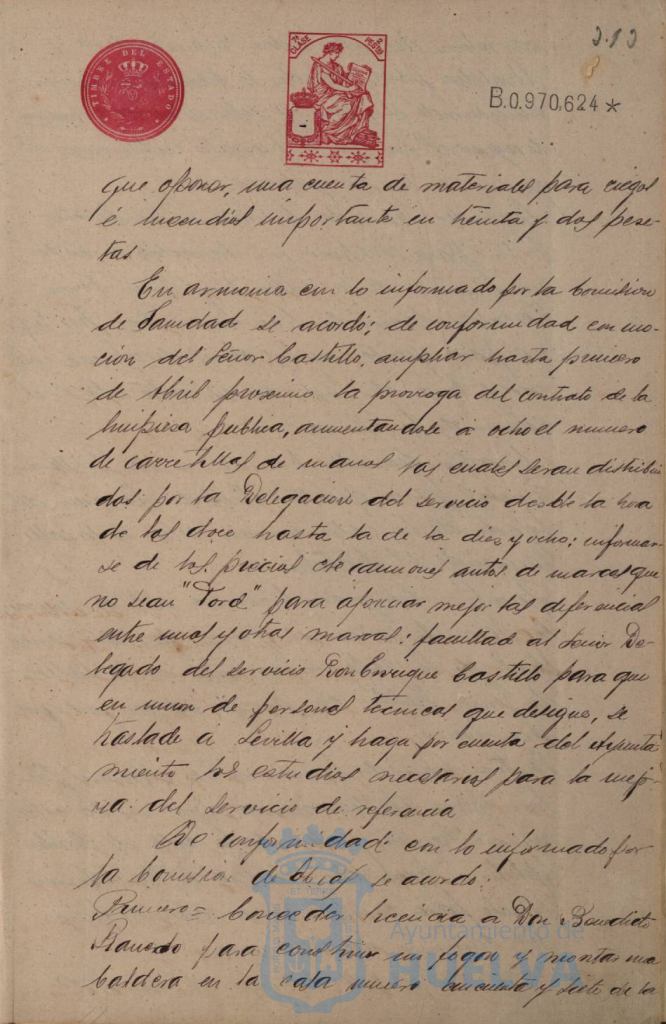 TIMBRE DEL ESTADO
7ª CLASE
2 PESTAS
B.0.970,624*
que oponer, una cuenta de materiales para riegos
é incendios importante en treinta y dos pese-
tas
En armonia con lo informado por la Comision
de Sanidad se acordó; de conformidad con mo-
ción del Señor Castillo, ampliar hasta primero
de Abril proximo la prorroga del contrato de la
limpieza publica, aumentandole á ocho el numero
de carretillas de manos las cuales seran distribui
das por la Delegacion del servicio desde la hora
de las doce hasta la de la diez y ocho; informar-
se de los precios de camiones autos de marcas que
no sean "Ford" para apreciar mejor las diferencias
entre unas y otras marcas; facultad al Señor De-
legado del servicio Don Enrique Castillo para que
en union de personal tecnicas que designe, se
traslade á Sevilla y haga por cuenta del Ayunta
miento los estudios necesarios para la mejo-
ra del servicio de referencia
De conformidad con lo informado por
la Comision de Obras se acordo:
Primero = Conceder licencia a Don Benedicto
para construir un fogon y montar una
caldera en la casa numero cincuenta y siete de la
Ayuntamiento de
HUELVA